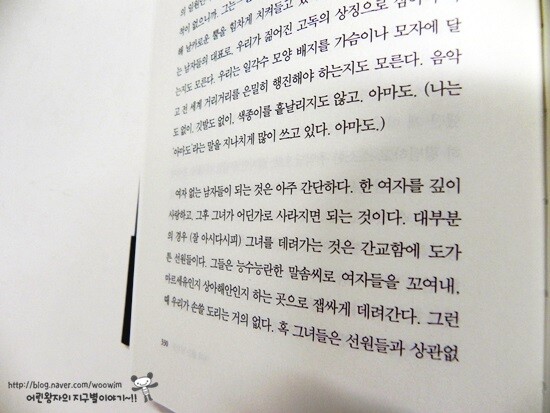 의 일원인
적이 없으니까. 그는
해 날카로운 뿔을 힘차게 치켜들고
는 남자들의 대표로, 우리가 짊어진 고독의 상징으로
는지도 모른다. 우리는 일각수 모양 배지를 가슴이나 모자에 달
고 전 세계 거리거리를 은밀히 행진해야 하는지도 모른다. 음악
도 없이, 깃발도 없이, 색종이를 흩날리지도 않고. 아마도. (나는
'아마도'라는 말을 지나치게 많이 쓰고 있다. 아마도.)
여자 없는 남자들이 되는 것은 아주 간단하다. 한 여자를 깊이
사랑하고, 그후 그녀가 어딘가로 사라지면 되는 것이다. 대부분
의 경우 (잘 아시다시피) 그녀를 데려가는 것은 간교함에 도가
튼 선원들이다. 그들은 능수능란한 말솜씨로 여자들을 꼬여내,
마르세유인지 상아해안인지 하는 곳으로 잽싸게 데려간다. 그런
때 우리가 손쓸 도리는 거의 없다. 혹 그녀들은 선원들과 상관없
330
http://blog.naver.com/woowim
어린왕자의 지구별이야기~!!